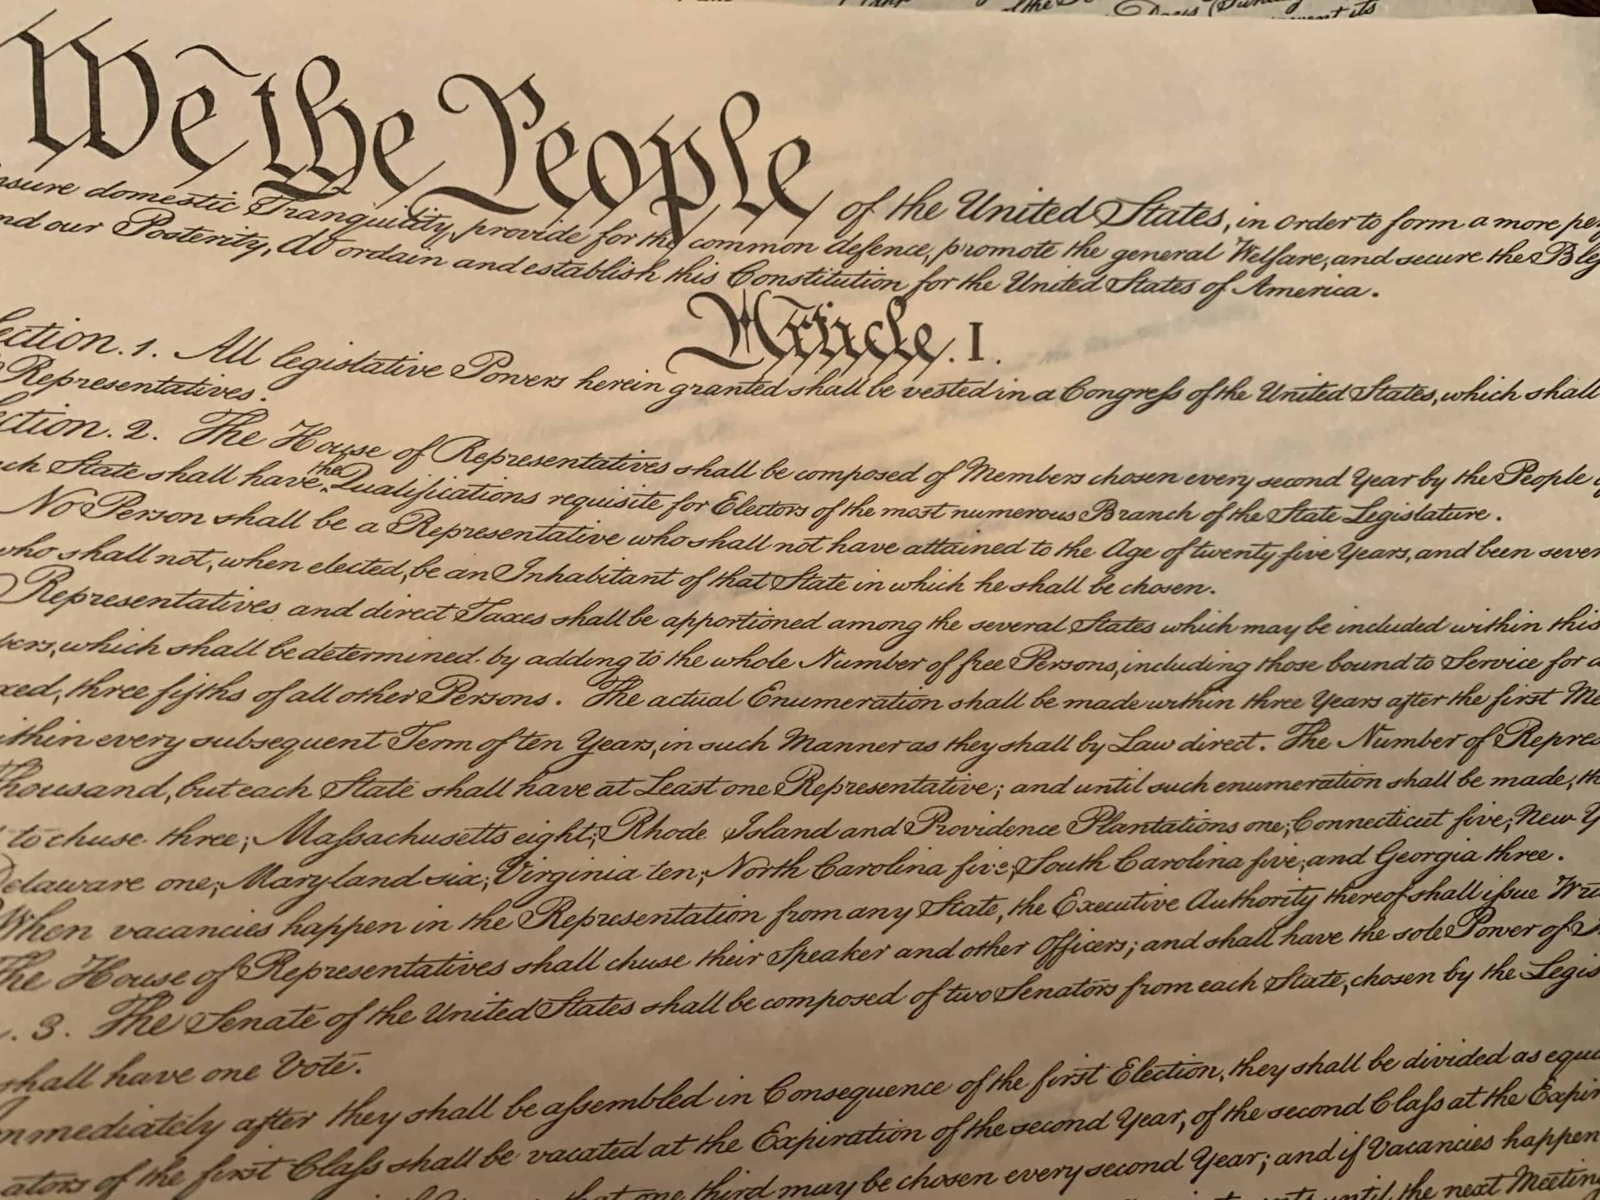 We the People of the United States, in order to form a more
domestic Tranquility, provide for the common defence, promote the general Welfare, and secure the
our Posterity, do ordain and establish this Constitution for the United States of America.
Article. I.
Section. 1. All legislative Powers herein granted shall be vested in a Congress of the United States, which shall
Representatives.
Section. 2. The House of Representatives shall be composed of Members chosen every second Year by the People
State shall have the Qualifications requisite for Electors of the most numerous Branch of the State Legislature.
No Person shall be a Representative who shall not have attained to the Age of twenty five Years, and been seven
who shall not, when elected, be an Inhabitant of that State in which he shall be chosen.
Representatives and direct Taxes shall be apportioned among the several States which may be included within this
bers, which shall be determined by adding to the whole Number of free Persons, including those bound to Service for a
xed, three fifths of all other Persons. The actual Enumeration shall be made within three Years after the first Me
ithin every subsequent Term of ten Years, in such Manner as they shall by Law direct. The Number of Repres
Thousand, but each State shall have at Least one Representative; and until such enumeration shall be made, th
to chuse three, Massachusetts eight, Rhode Island and Providence Plantations one, Connecticut five, New Y
Delaware one, Maryland six, Virginia ten, North Carolina five, South Carolina five, and Georgia three.
When vacancies happen in the Representation from any State, the Executive Authority thereof shall issue Wri
The House of Representatives shall chuse their Speaker and other Officers; and shall have the sole Power of
. 3. The Senate of the United States shall be composed of two Senators from each State, chosen by the Legis
shall have one Vote.
Immediately after they shall be assembled in Consequence of the first Election, they shall be divided as equa
ators of the first Class shall be vacated at the Expiration of the second Year, of the second Class at the Expir
that one third may be chosen every second Year; and if Vacancies happen
until the next Meeting